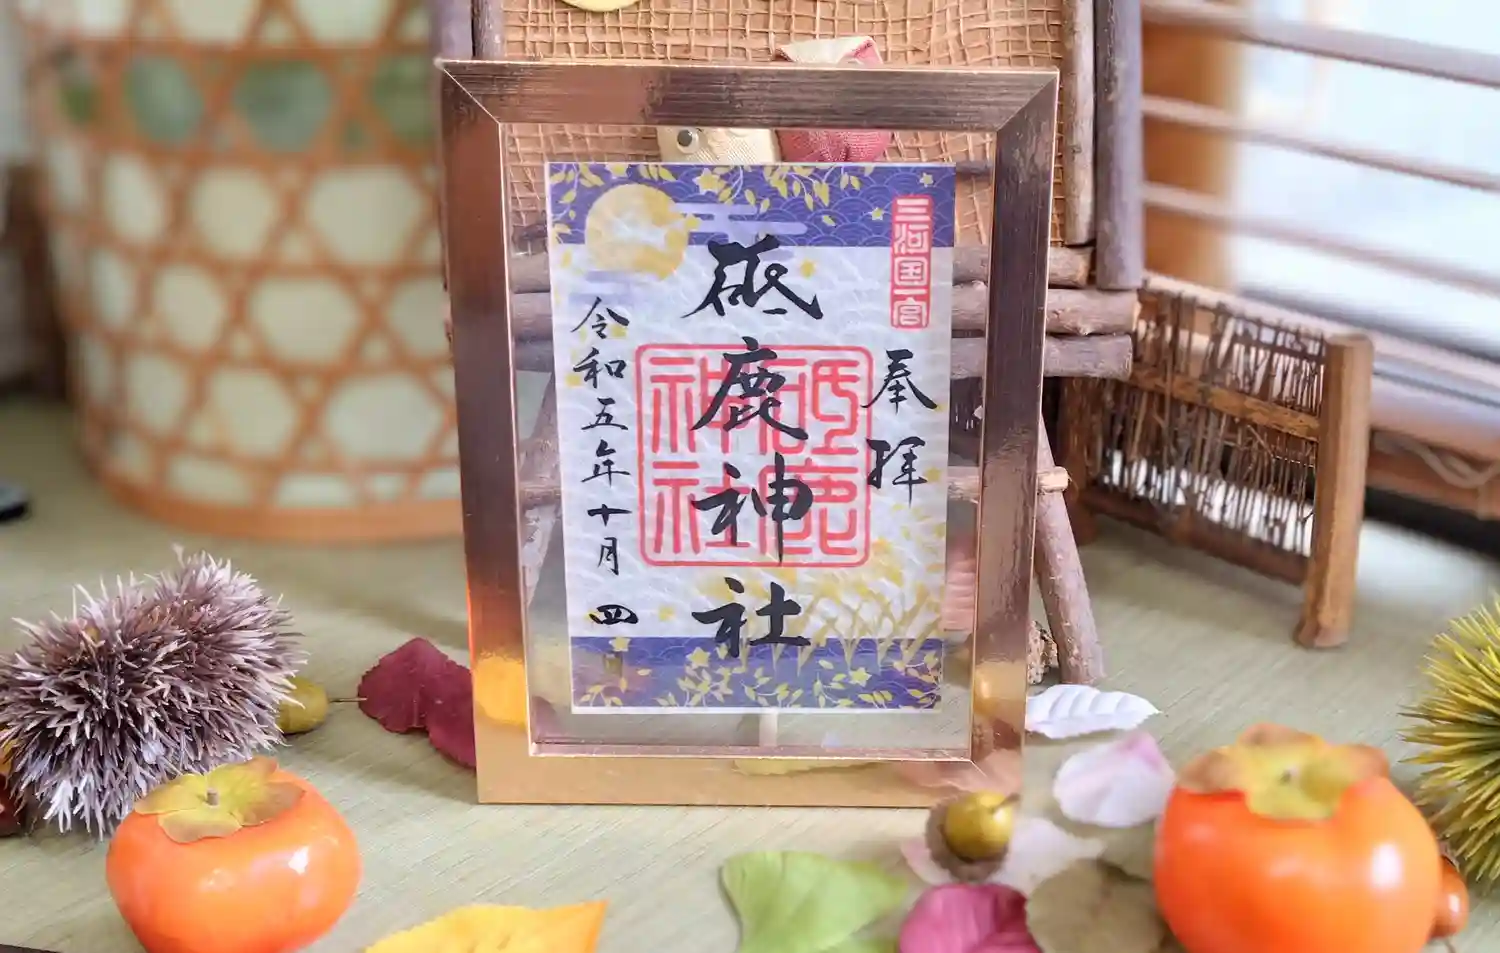 三河国一宮
奉拝
砥鹿神社
砥鹿神社
令和五年十月四